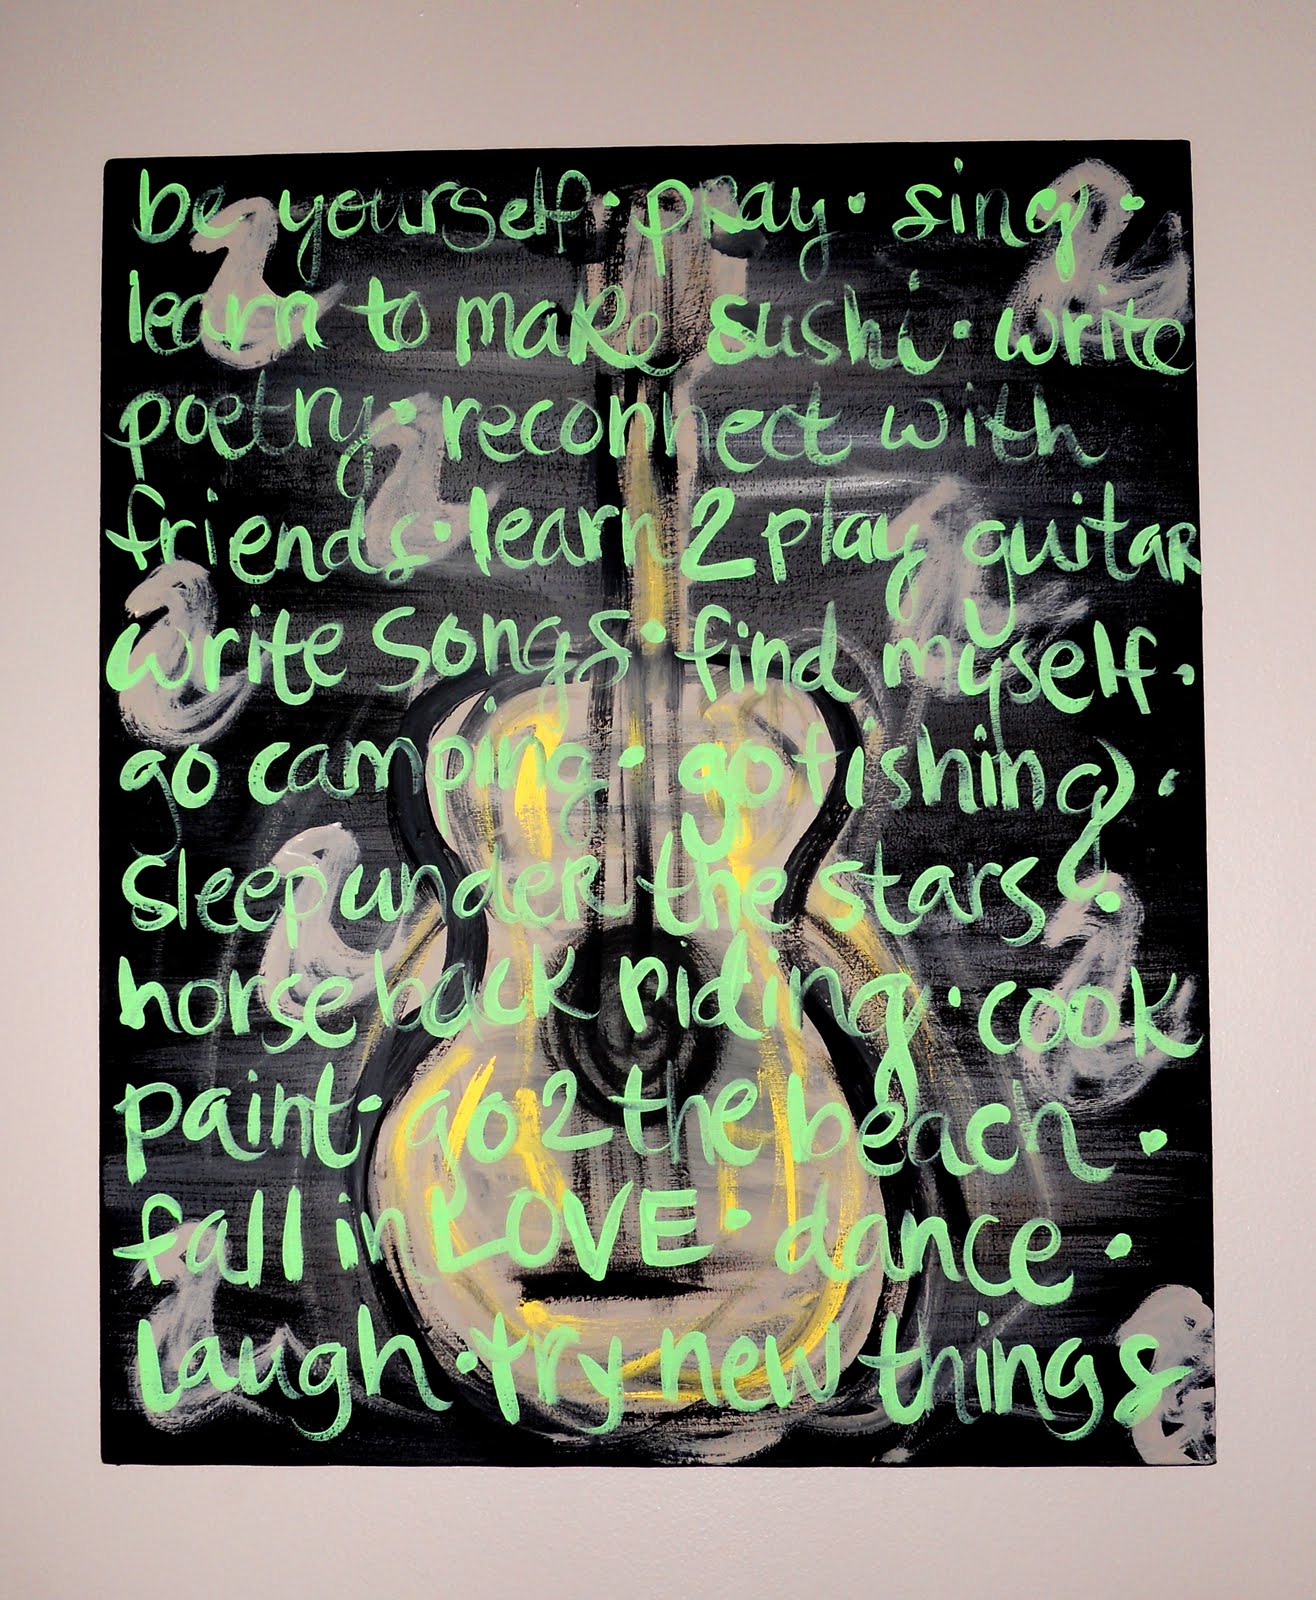 be yourself · pray · sing ·
learn to make sushi · write
poetry · reconnect with
friends · learn 2 play guitar
write songs · find myself ·
go camping · go fishing ·
sleep under the stars ·
horse back riding · cook
paint · go 2 the beach ·
fall in LOVE · dance ·
laugh · try new things